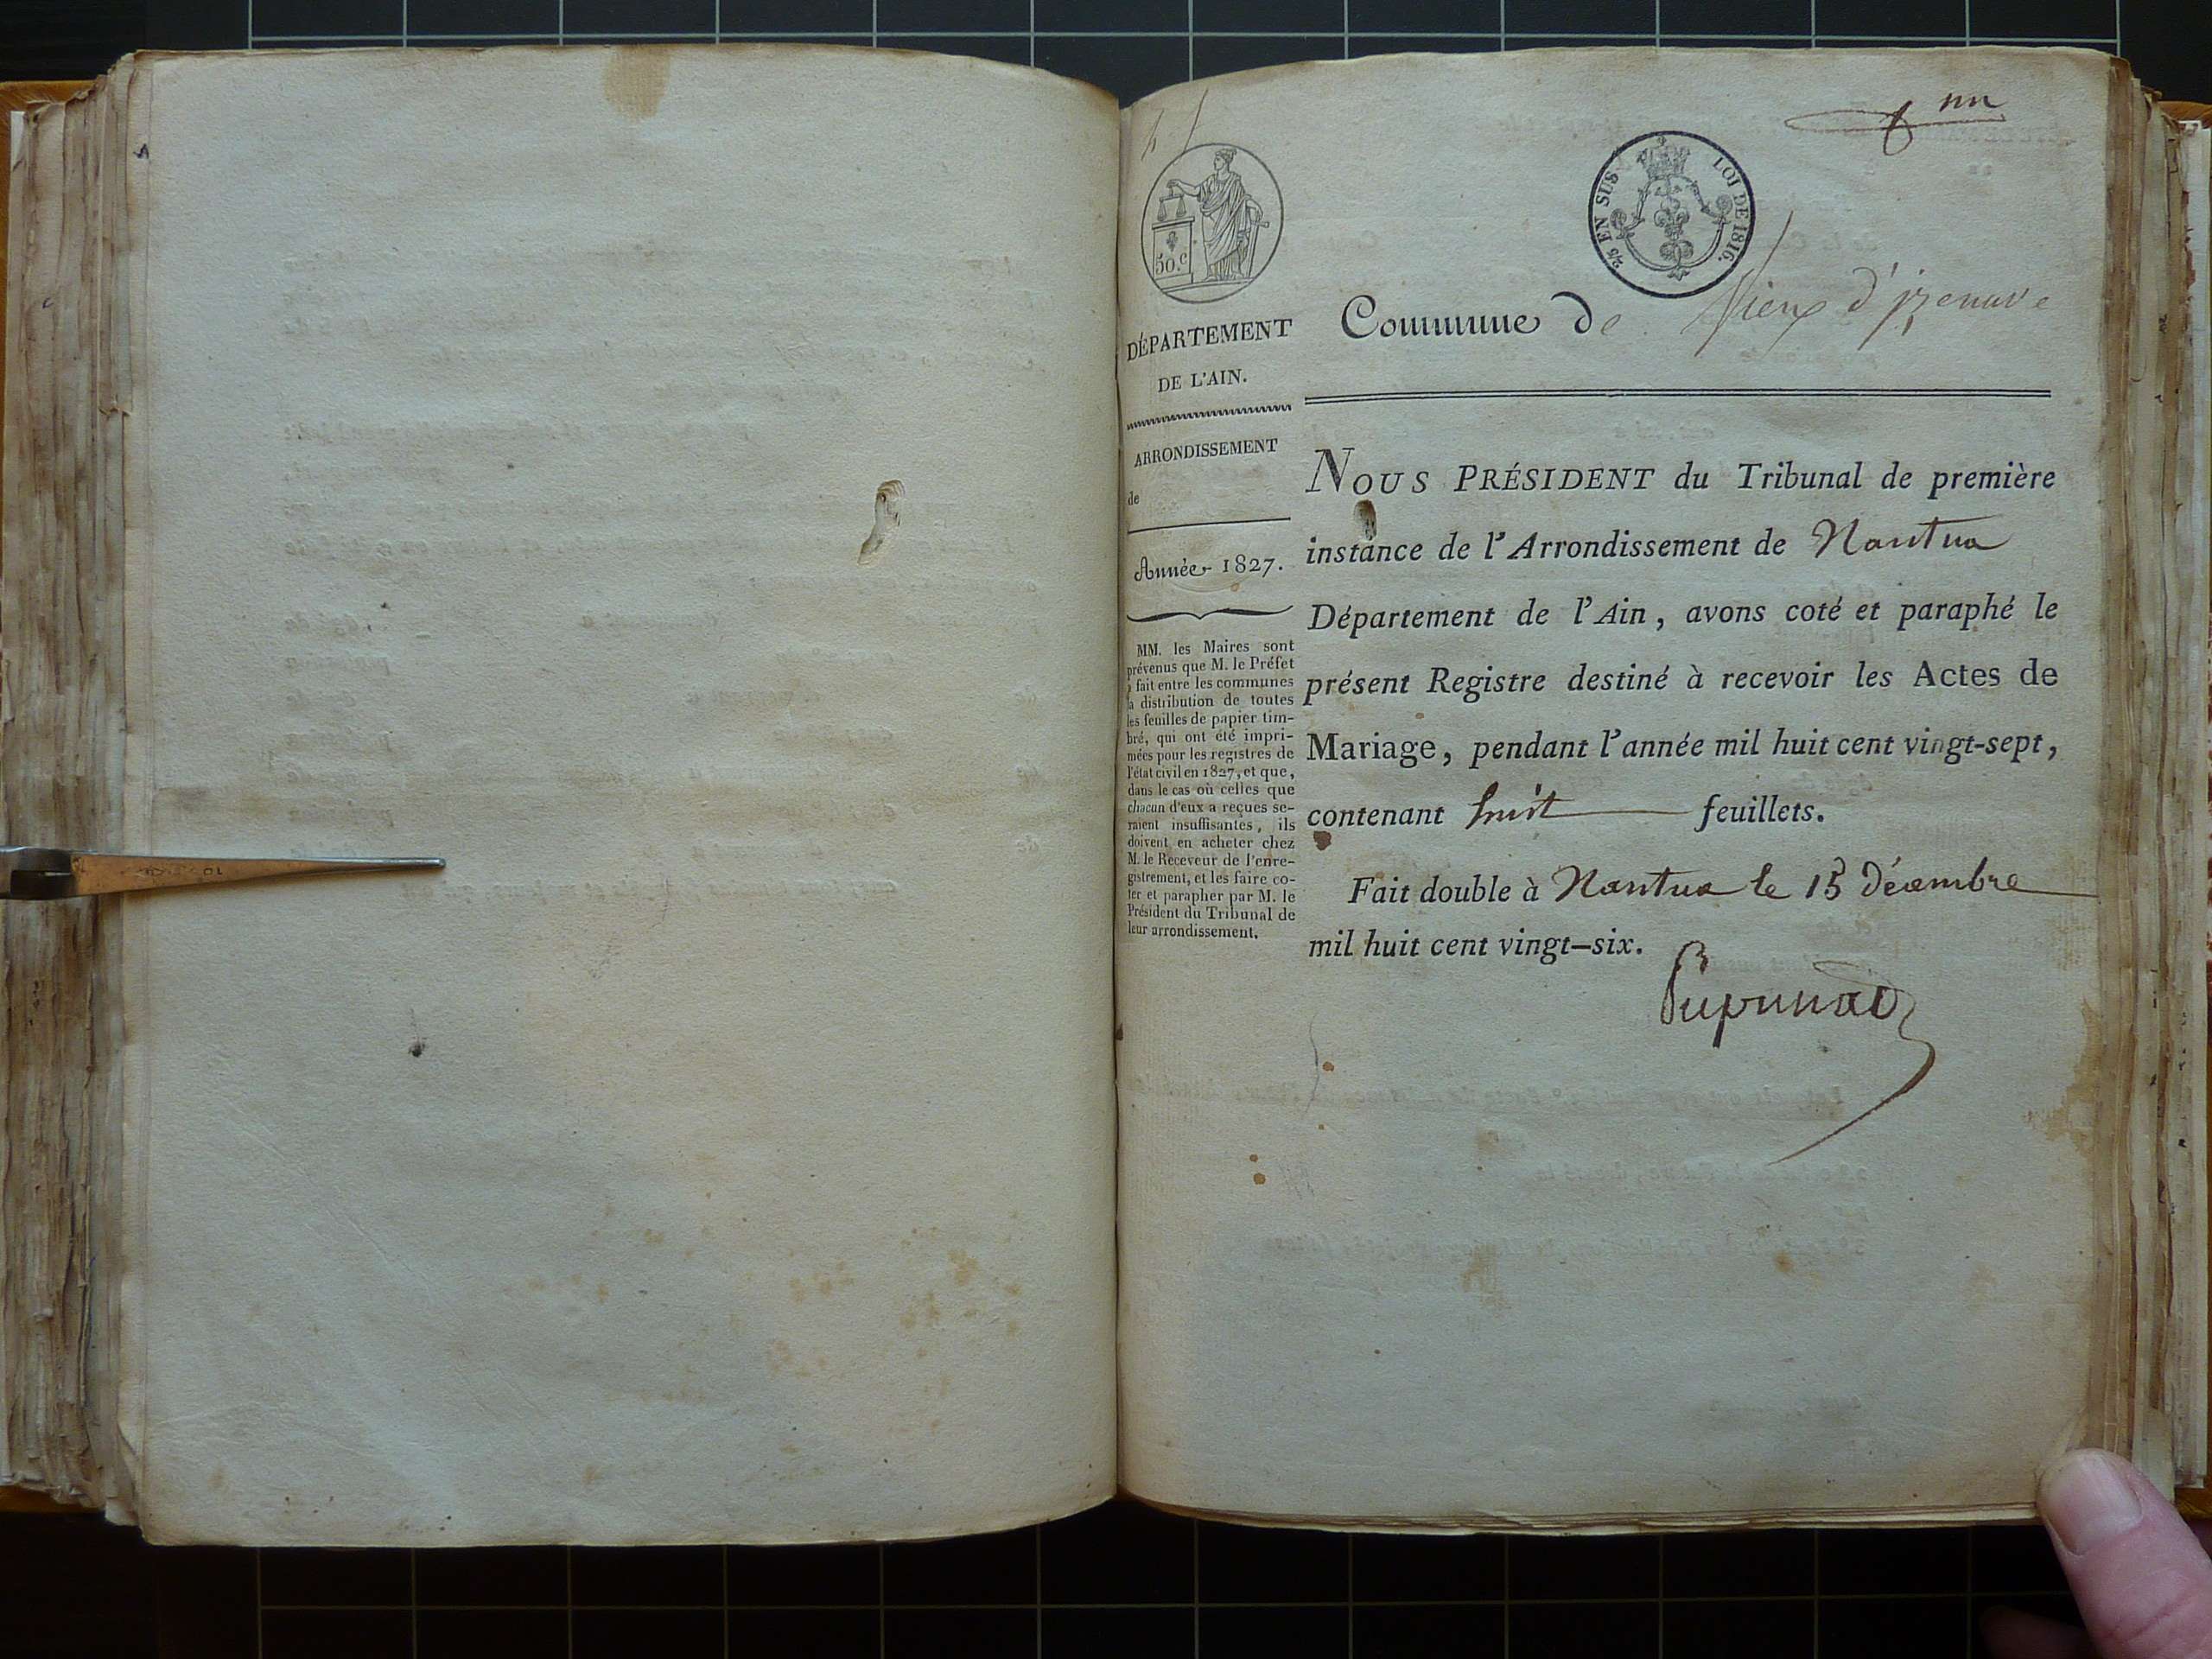 un
50.c
2/5 EN SUS
LOI DE 1816.
DÉPARTEMENT
DE L'AIN.
ARRONDISSEMENT
de
Année 1827.
MM. les Maires sont
prévenus que M. le Préfet
a fait entre les communes
la distribution de toutes
les feuilles de papier tim-
bré, qui ont été impri-
mées pour les registres de
l'état civil en 1827, et que,
dans le cas où celles que
chacun d'eux a reçues se-
raient insuffisantes, ils
doivent en acheter chez
M. le Receveur de l'enre-
gistrement, et les faire co-
ter et parapher par M. le
Président du Tribunal de
leur arrondissement.
Commune de Vieux d'izenave
NOUS PRÉSIDENT du Tribunal de première
instance de l'Arrondissement de Nantua
Département de l'Ain, avons coté et paraphé le
présent Registre destiné à recevoir les Actes de
Mariage, pendant l'année mil huit cent vingt-sept,
contenant huit feuillets.
Fait double à Nantua le 15 Décembre
mil huit cent vingt-six.